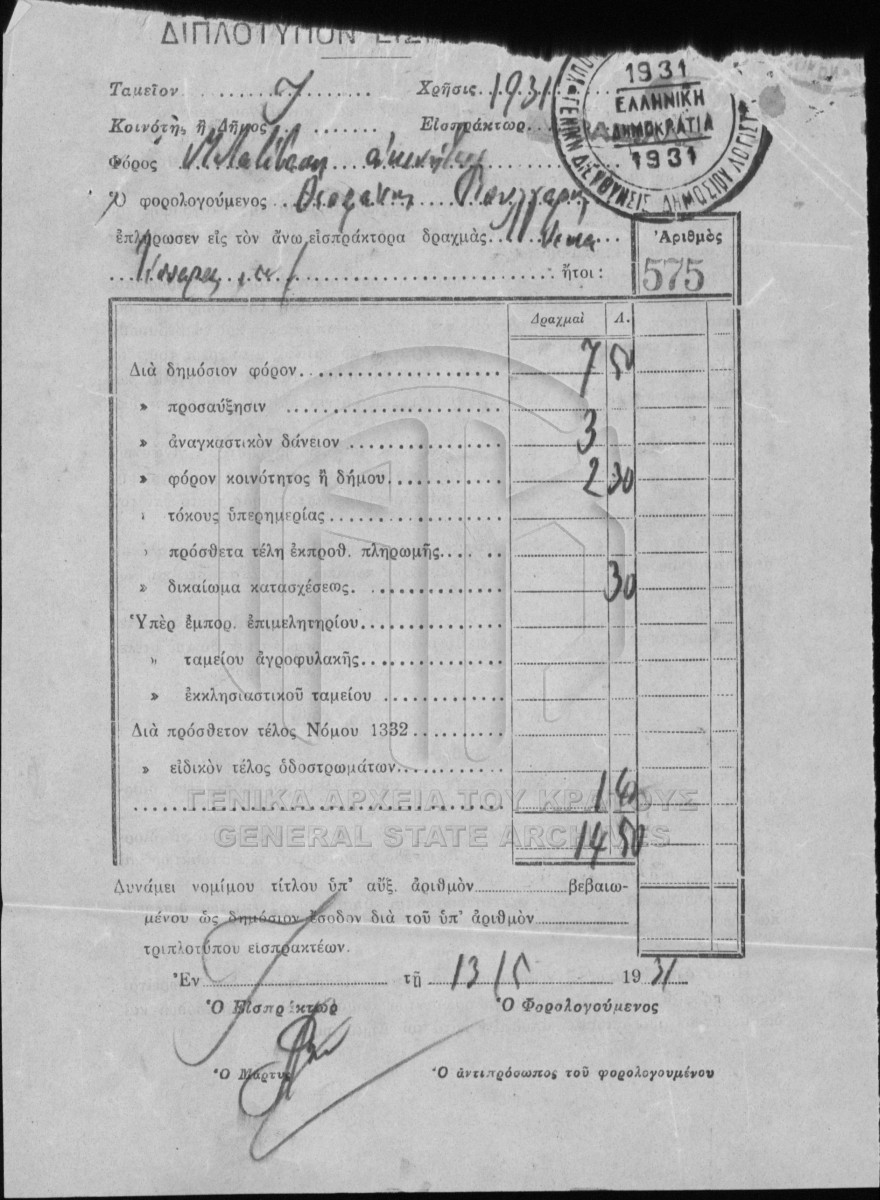 ΔΙΠΛΟΤΥΠΟΝ
Ταμεῖον
Χρῆσις 1931
Κοινότη, ἢ Δῆμος
Εἰσπράκτωρ
Φόρος
Ὁ φορολογούμενος
ἐπλήρωσεν εἰς τὸν ἄνω εἰσπράκτορα δραχμὰς
ἤτοι:
1931
ΕΛΛΗΝΙΚΗ
ΔΗΜΟΚΡΑΤΙΑ
1931
ΓΕΝΙΚΗ ΔΙΕΥΘΥΝΣΙΣ ΔΗΜΟΣΙΟΥ ΛΟΓΙΣΤ
Ἀριθμὸς
575
Δραχμαὶ Λ.
Διὰ δημόσιον φόρον 7 50
» προσαύξησιν
» ἀναγκαστικὸν δάνειον 3
» φόρον κοινότητος ἢ δήμου 2 30
» τόκους ὑπερημερίας
» πρόσθετα τέλη ἐκπροθ. πληρωμῆς
» δικαίωμα κατασχέσεως 30
Ὑπὲρ ἐμπορ. ἐπιμελητηρίου
» ταμείου ἀγροφυλακῆς
» ἐκκλησιαστικοῦ ταμείου
Διὰ πρόσθετον τέλος Νόμου 1332
» εἰδικὸν τέλος ὁδοστρωμάτων
1 40
14 50
ΓΕΝΙΚΑ ΑΡΧΕΙΑ ΤΟΥ ΚΡΑΤΟΥΣ
GENERAL STATE ARCHIVES
Δυνάμει νομίμου τίτλου ὑπ' αὔξ. ἀριθμὸν βεβαιω-
μένου ὡς δημόσιον ἔσοδον διὰ τοῦ ὑπ' ἀριθμὸν
τριπλοτύπου εἰσπρακτέων.
Ἐν τῇ 13/5 1931
Ὁ Εἰσπράκτωρ
Ὁ Φορολογούμενος
Ὁ Μάρτυς
Ὁ ἀντιπρόσωπος τοῦ φορολογουμένου